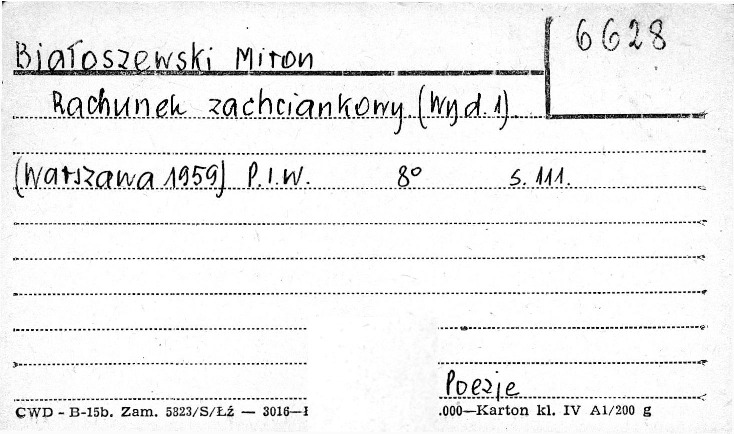 6628
Białoszewski Miron
Rachunek zachciankowy (Wyd. 1)
(Warszawa 1959) P.I.W. 8° s. 111.
Poezje
CWD - B-15b. Zam. 5823/S/Łź — 3016—1 .000—Karton kl. IV A1/200 g